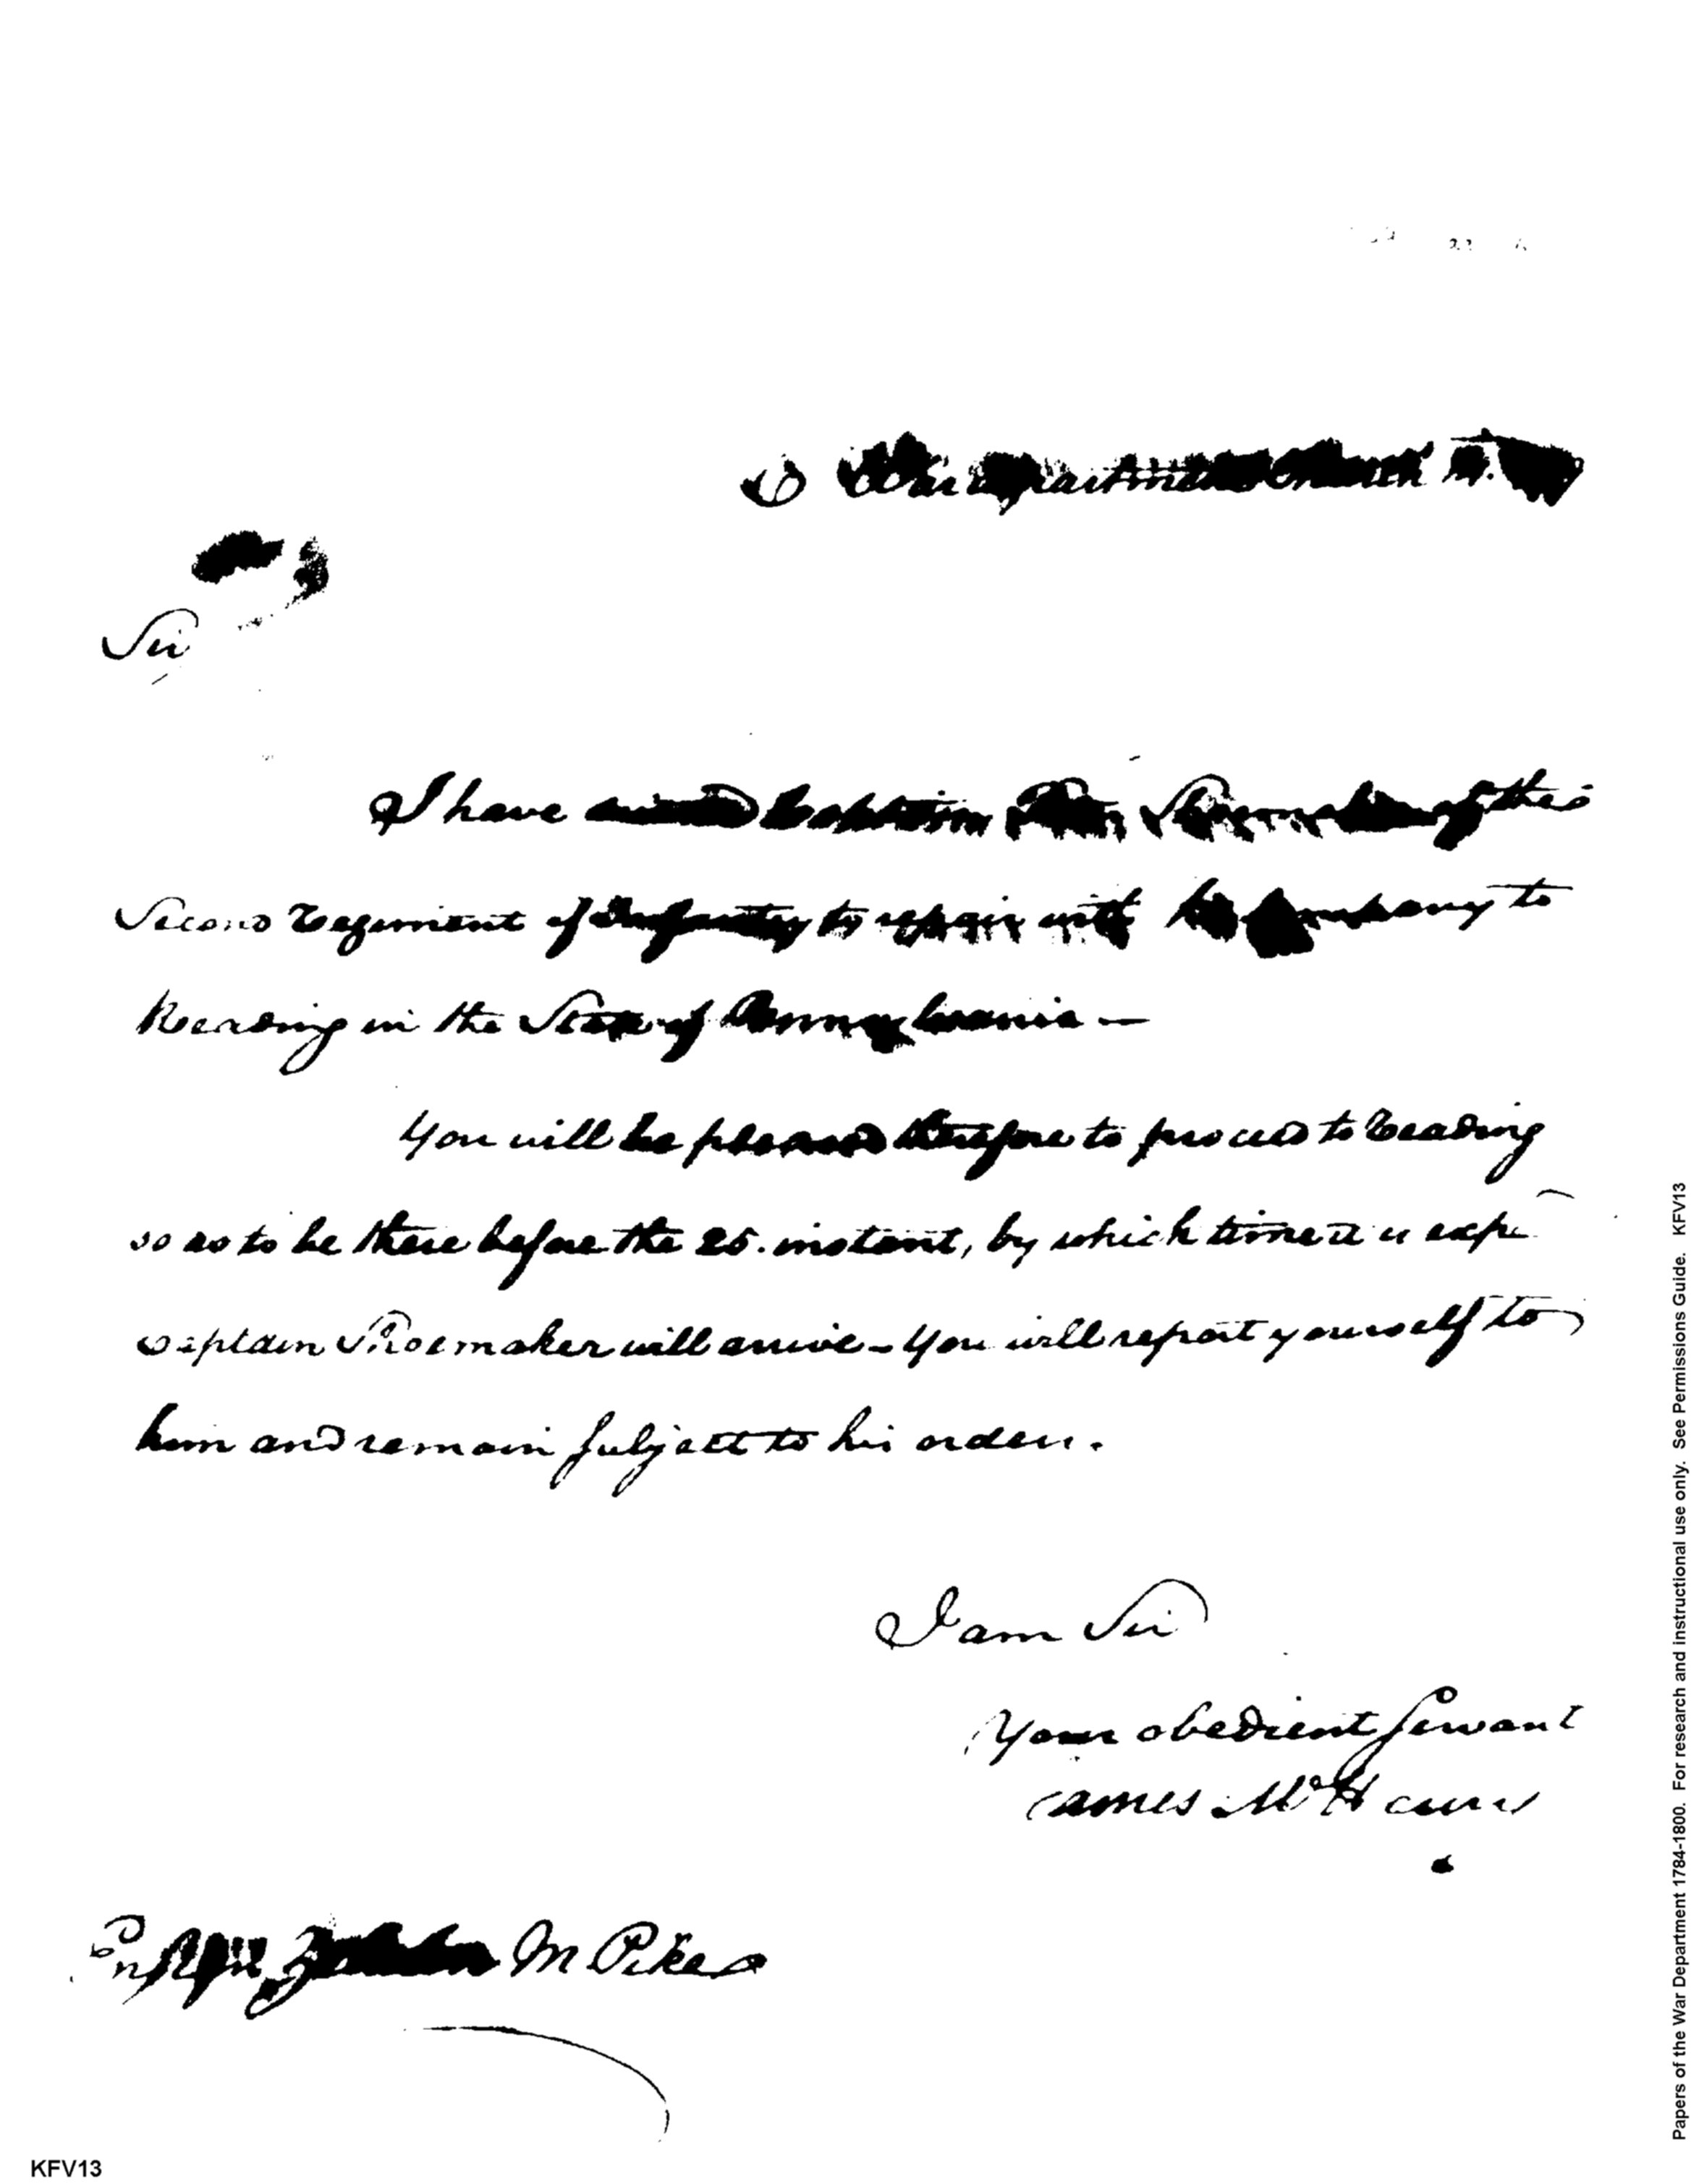 War Department March
Sir
I have Captain Shoemaker of the
Second Regiment of Infantry to repair with his Company to
Reading in the State of Pennsylvania —
You will be pleased therefore to proceed to Reading
so as to be there before the 25. instant, by which time it is expe
Captain Shoemaker will arrive - You will report yourself to
him and remain subject to his orders.
I am Sir
Your obedient servant
James McHenry
M Pike
KFV13
Papers of the War Department 1784-1800. For research and instructional use only. See Permissions Guide. KFV13